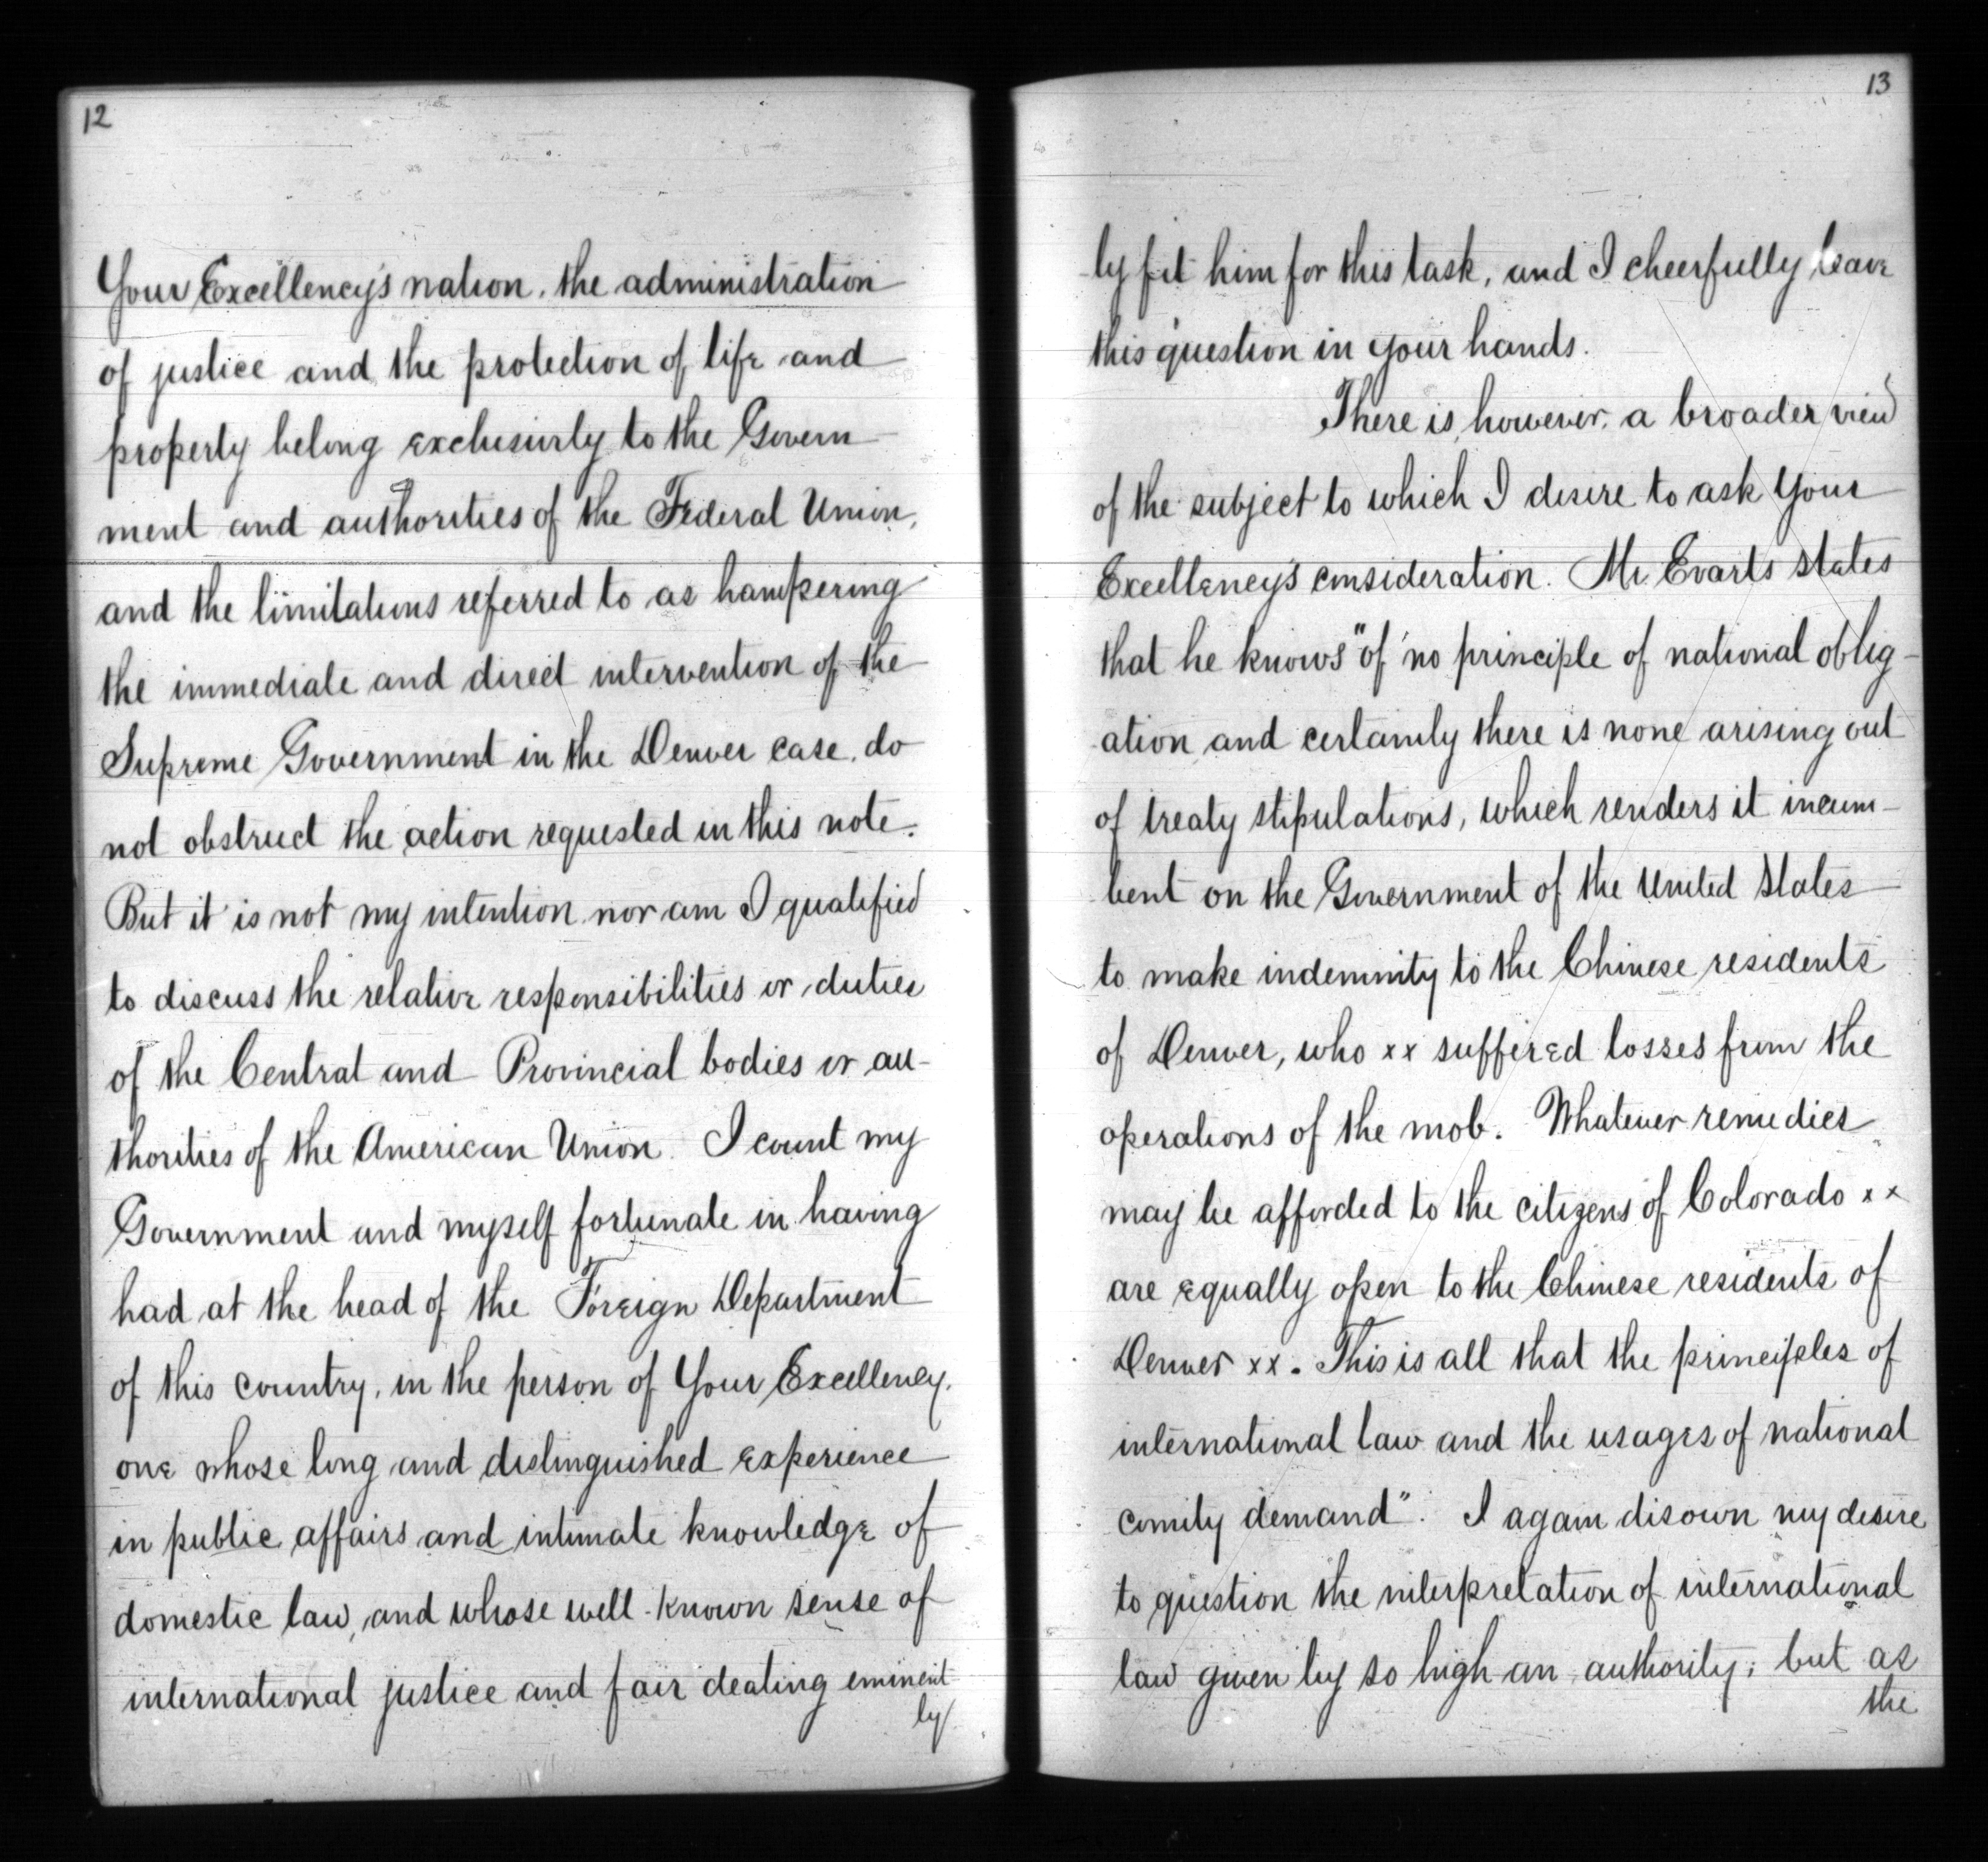 12
Your Excellency's nation, the administration
of justice and the protection of life and
property belong exclusively to the Govern
ment and authorities of the Federal Union,
and the limitations referred to as hampering
the immediate and direct intervention of the
Supreme Government in the Denver case, do
not obstruct the action requested in this note.
But it is not my intention nor am I qualified
to discuss the relative responsibilities or duties
of the Central and Provincial bodies or au-
thorities of the American Union. I count my
Government and myself fortunate in having
had at the head of the Foreign Department
of this country, in the person of Your Excellency,
one whose long and distinguished experience
in public affairs and intimate knowledge of
domestic law, and whose well-known sense of
international justice and fair dealing eminent
ly
13
ly fit him for this task, and I cheerfully leave
this question in your hands.
There is, however, a broader view
of the subject to which I desire to ask Your
Excellency's consideration. Mr. Evarts states
that he knows "of no principle of national oblig-
ation and certainly there is none arising out
of treaty stipulations, which renders it incum-
bent on the Government of the United States
to make indemnity to the Chinese residents
of Denver, who xx suffered losses from the
operations of the mob. Whatever remedies
may be afforded to the citizens of Colorado xx
are equally open to the Chinese residents of
Denver xx. This is all that the principles of
international law and the usages of national
comity demand". I again disown my desire
to question the interpretation of international
law given by so high an authority; but as
the